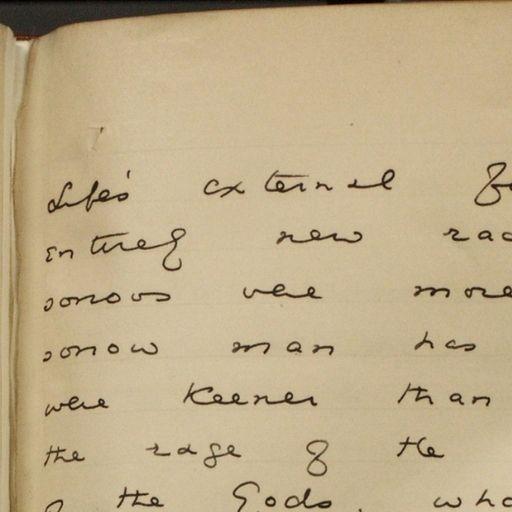 Life's external
entirely new
sorrows were more
sorrow man has
were keener than
the rage of the
of the Gods, who